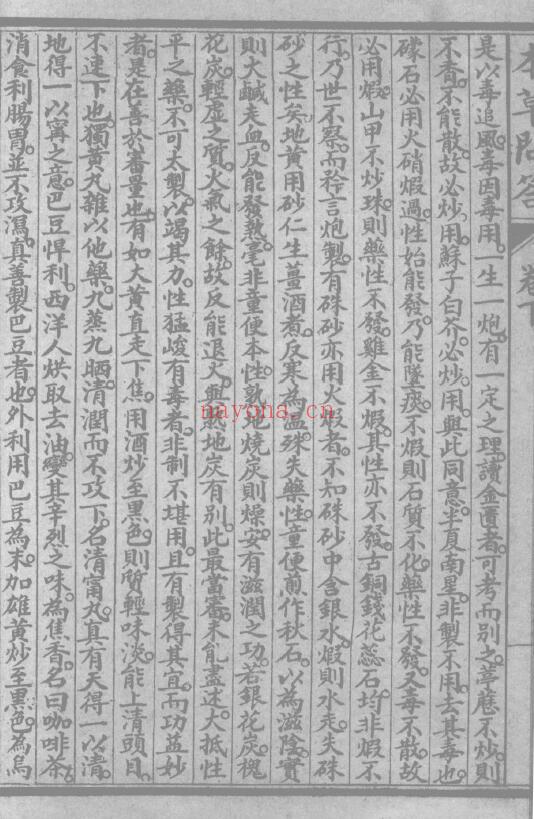 本草問答 卷下
是以毒追風毒因毒用一生一炮有一定之理讀金匱者可考而別之葶藶不炒則
不香不能散故必炒用蘇子白芥必炒用與此同意半夏南星非製不用去其毒也
礞石必用火硝煅過性始能發乃能墜痰不煅則石質不化藥性不發又毒不散故
必用煅山甲不炒珠則藥性不發雞金不煅其性亦不發古銅錢花蕊石均非煅不
行乃世不察而矜言炮製有硃砂亦用火煅者不知硃砂中含銀水煅則水走失硃
砂之性矣地黃用砂仁生薑酒煮反寒為溫殊失藥性童便煎作秋石以為滋陰實
則大鹹走血反能發熱毫非童便本性熟地燒炭則燥安有滋潤之功若銀花炭槐
花炭輕虛之質火氣之餘故反能退火與熟地炭有別此最當審未能盡述大抵性
平之藥不可太製以竭其力性猛峻有毒者非制不堪用且有製得其宜而功益妙
者是在善於審量也有如大黃直走下焦用酒炒至黑色則質輕味淡能上清頭目
不速下也獨黃丸雜以他藥九蒸九晒清潤而不攻下名清甯丸真有天得一以清
地得一以甯之意巴豆悍利西洋人烘取去油變其辛烈之味為焦香名曰咖啡茶
消食利腸胃並不攻瀉真善製巴豆者也外利用巴豆為末加雄黃炒至黑色為烏
nayona.cn